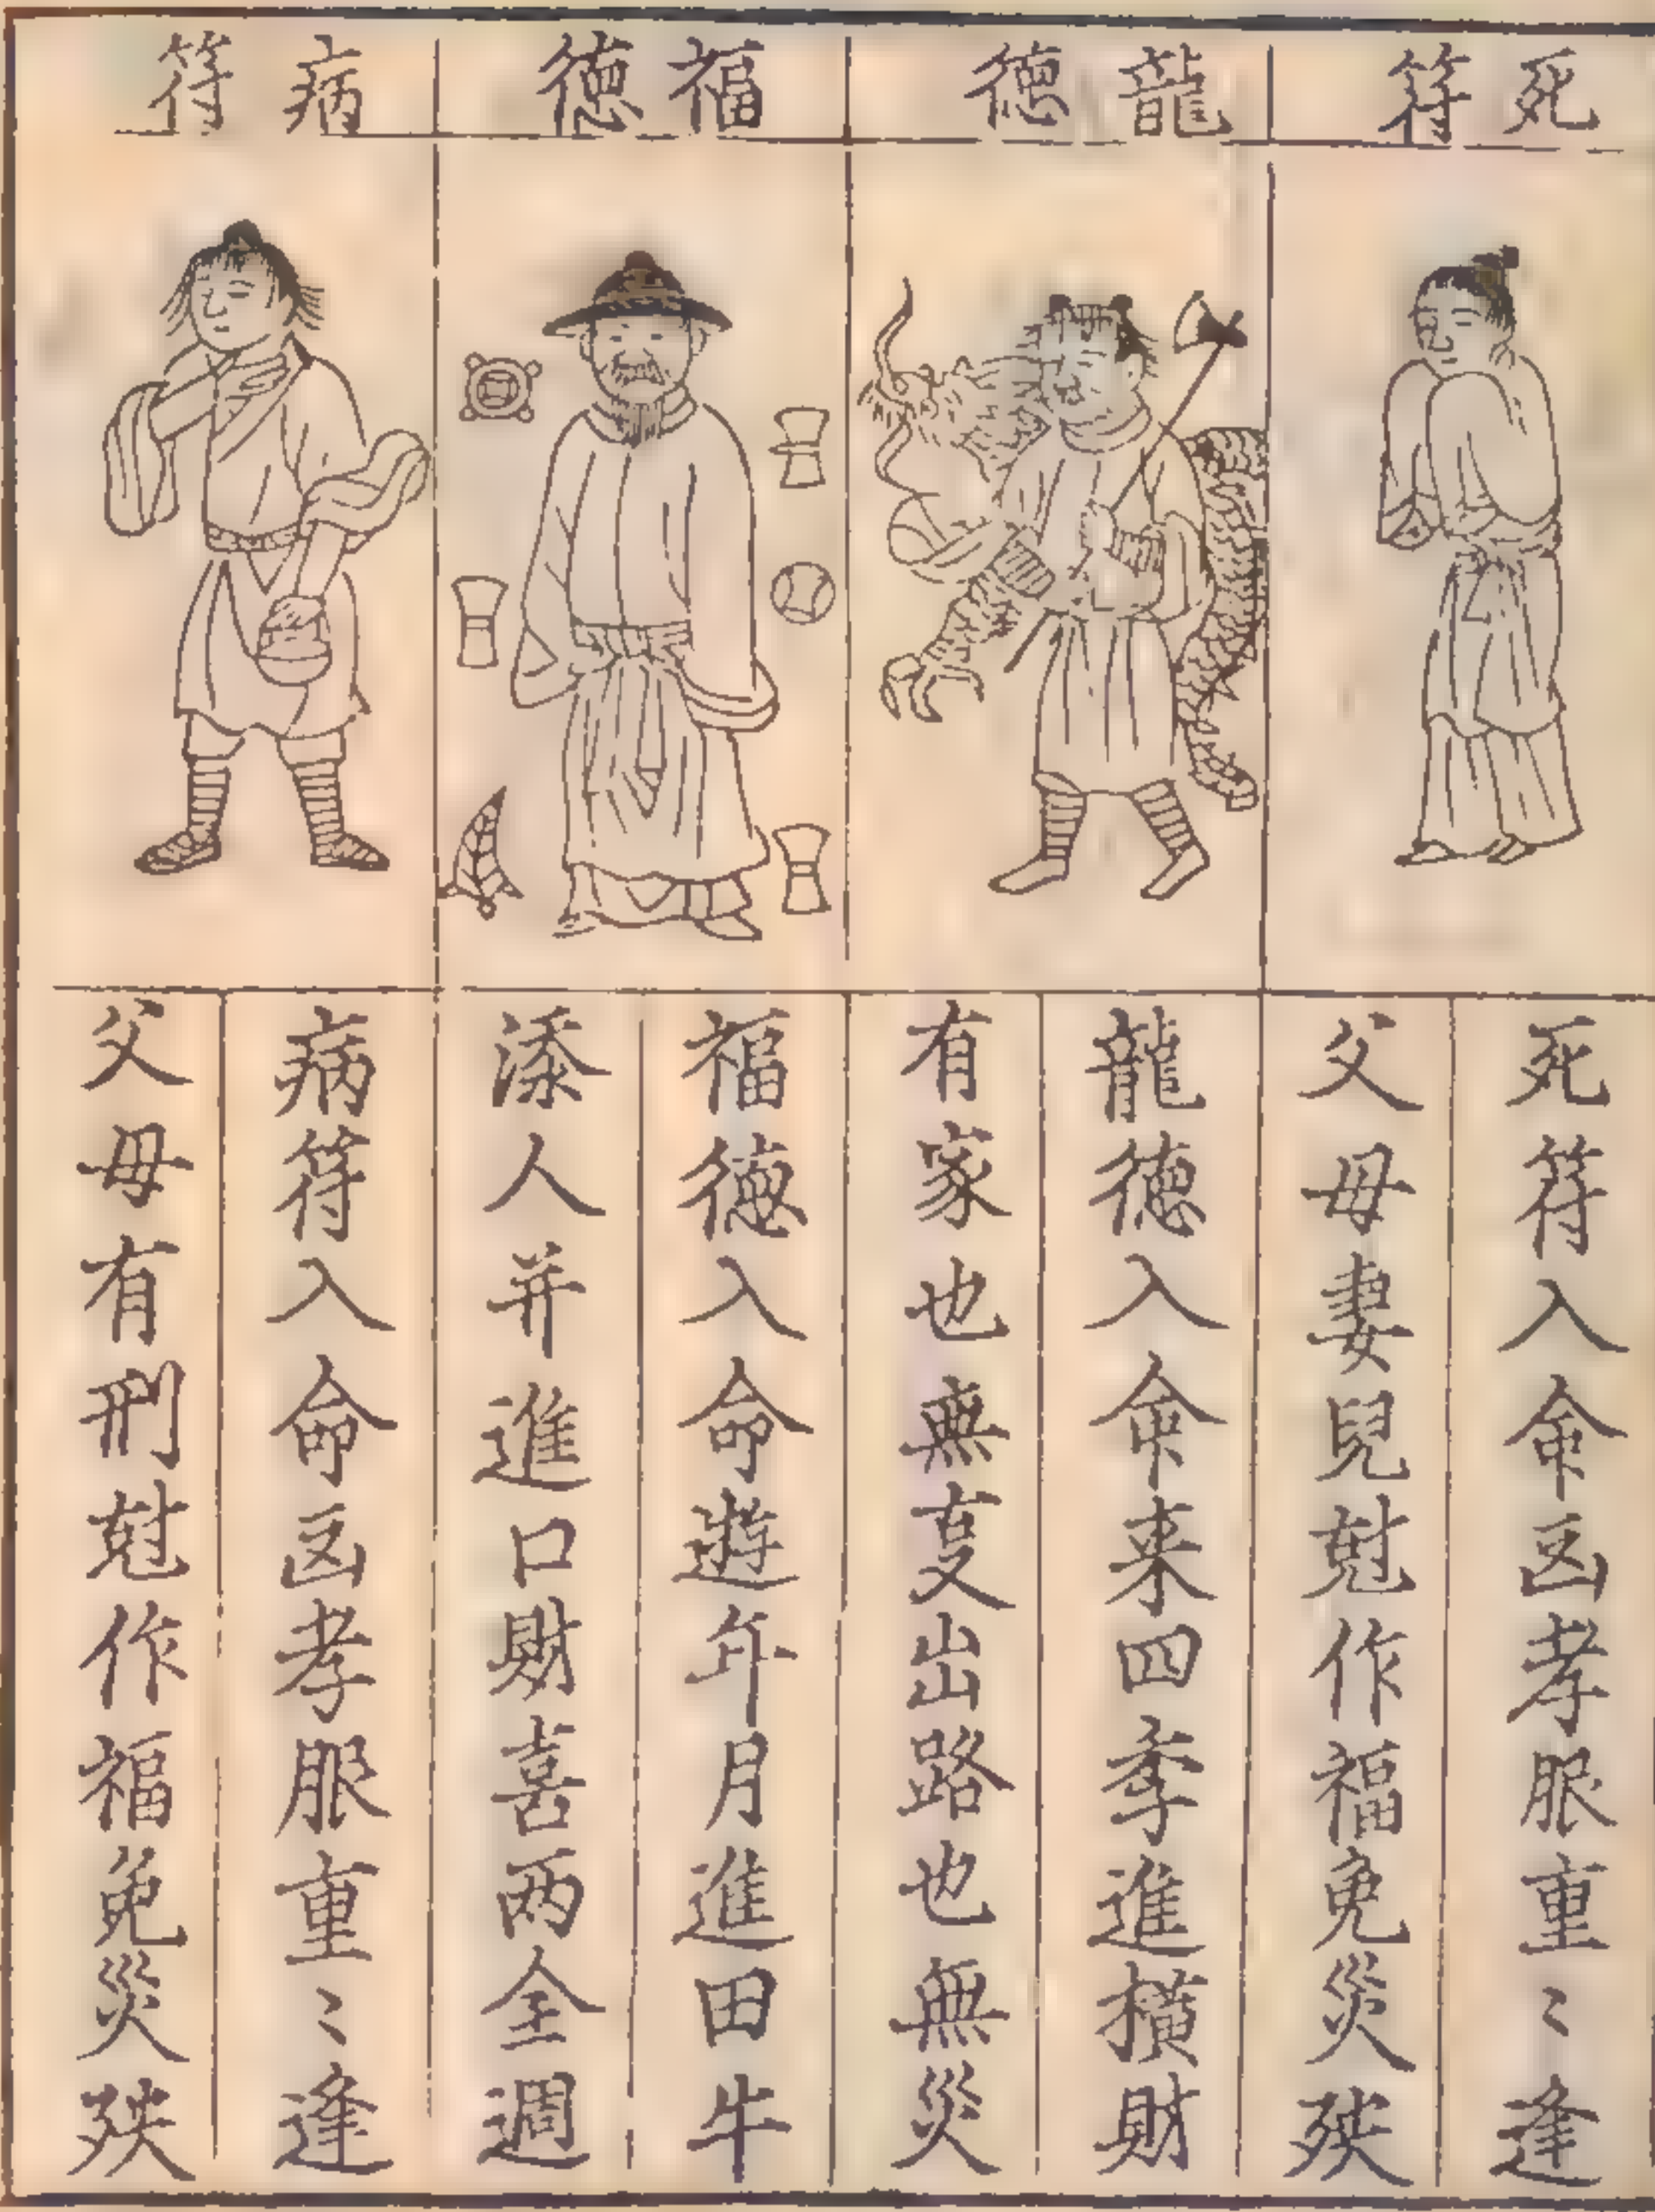 死符
龍德
福德
病符
死符入命凶孝服重〻逢
父母妻兒尅作福免災殃
龍德入命来四季進横財
有家也無憂出路也無災
福德入命遊年月進田牛
添人并進口財喜两全週
病符入命凶孝服重〻逢
父母有刑尅作福免災殃